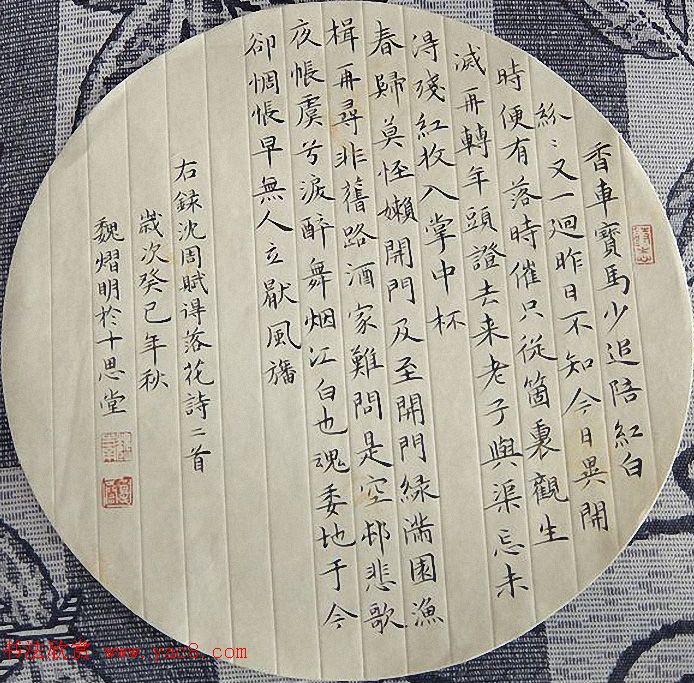 香車寶馬少追陪紅白
紛〻又一廻昨日不知今日異開
時便有落時催只從箇裏觀生
滅再轉年頭證去来老子與渠忘未
淂殘紅收入掌中杯
春歸莫怪嬾開門及至開門緑满園漁
楫再尋非舊路酒家難問是空邨悲歌
夜帳虞兮淚醉舞烟江白也魂委地于今
卻惆悵早無人立厭風旛
右録沈周賦淂落花詩二首
歲次癸已年秋
魏熠明於十思堂
书法欣赏 www.yac8.com